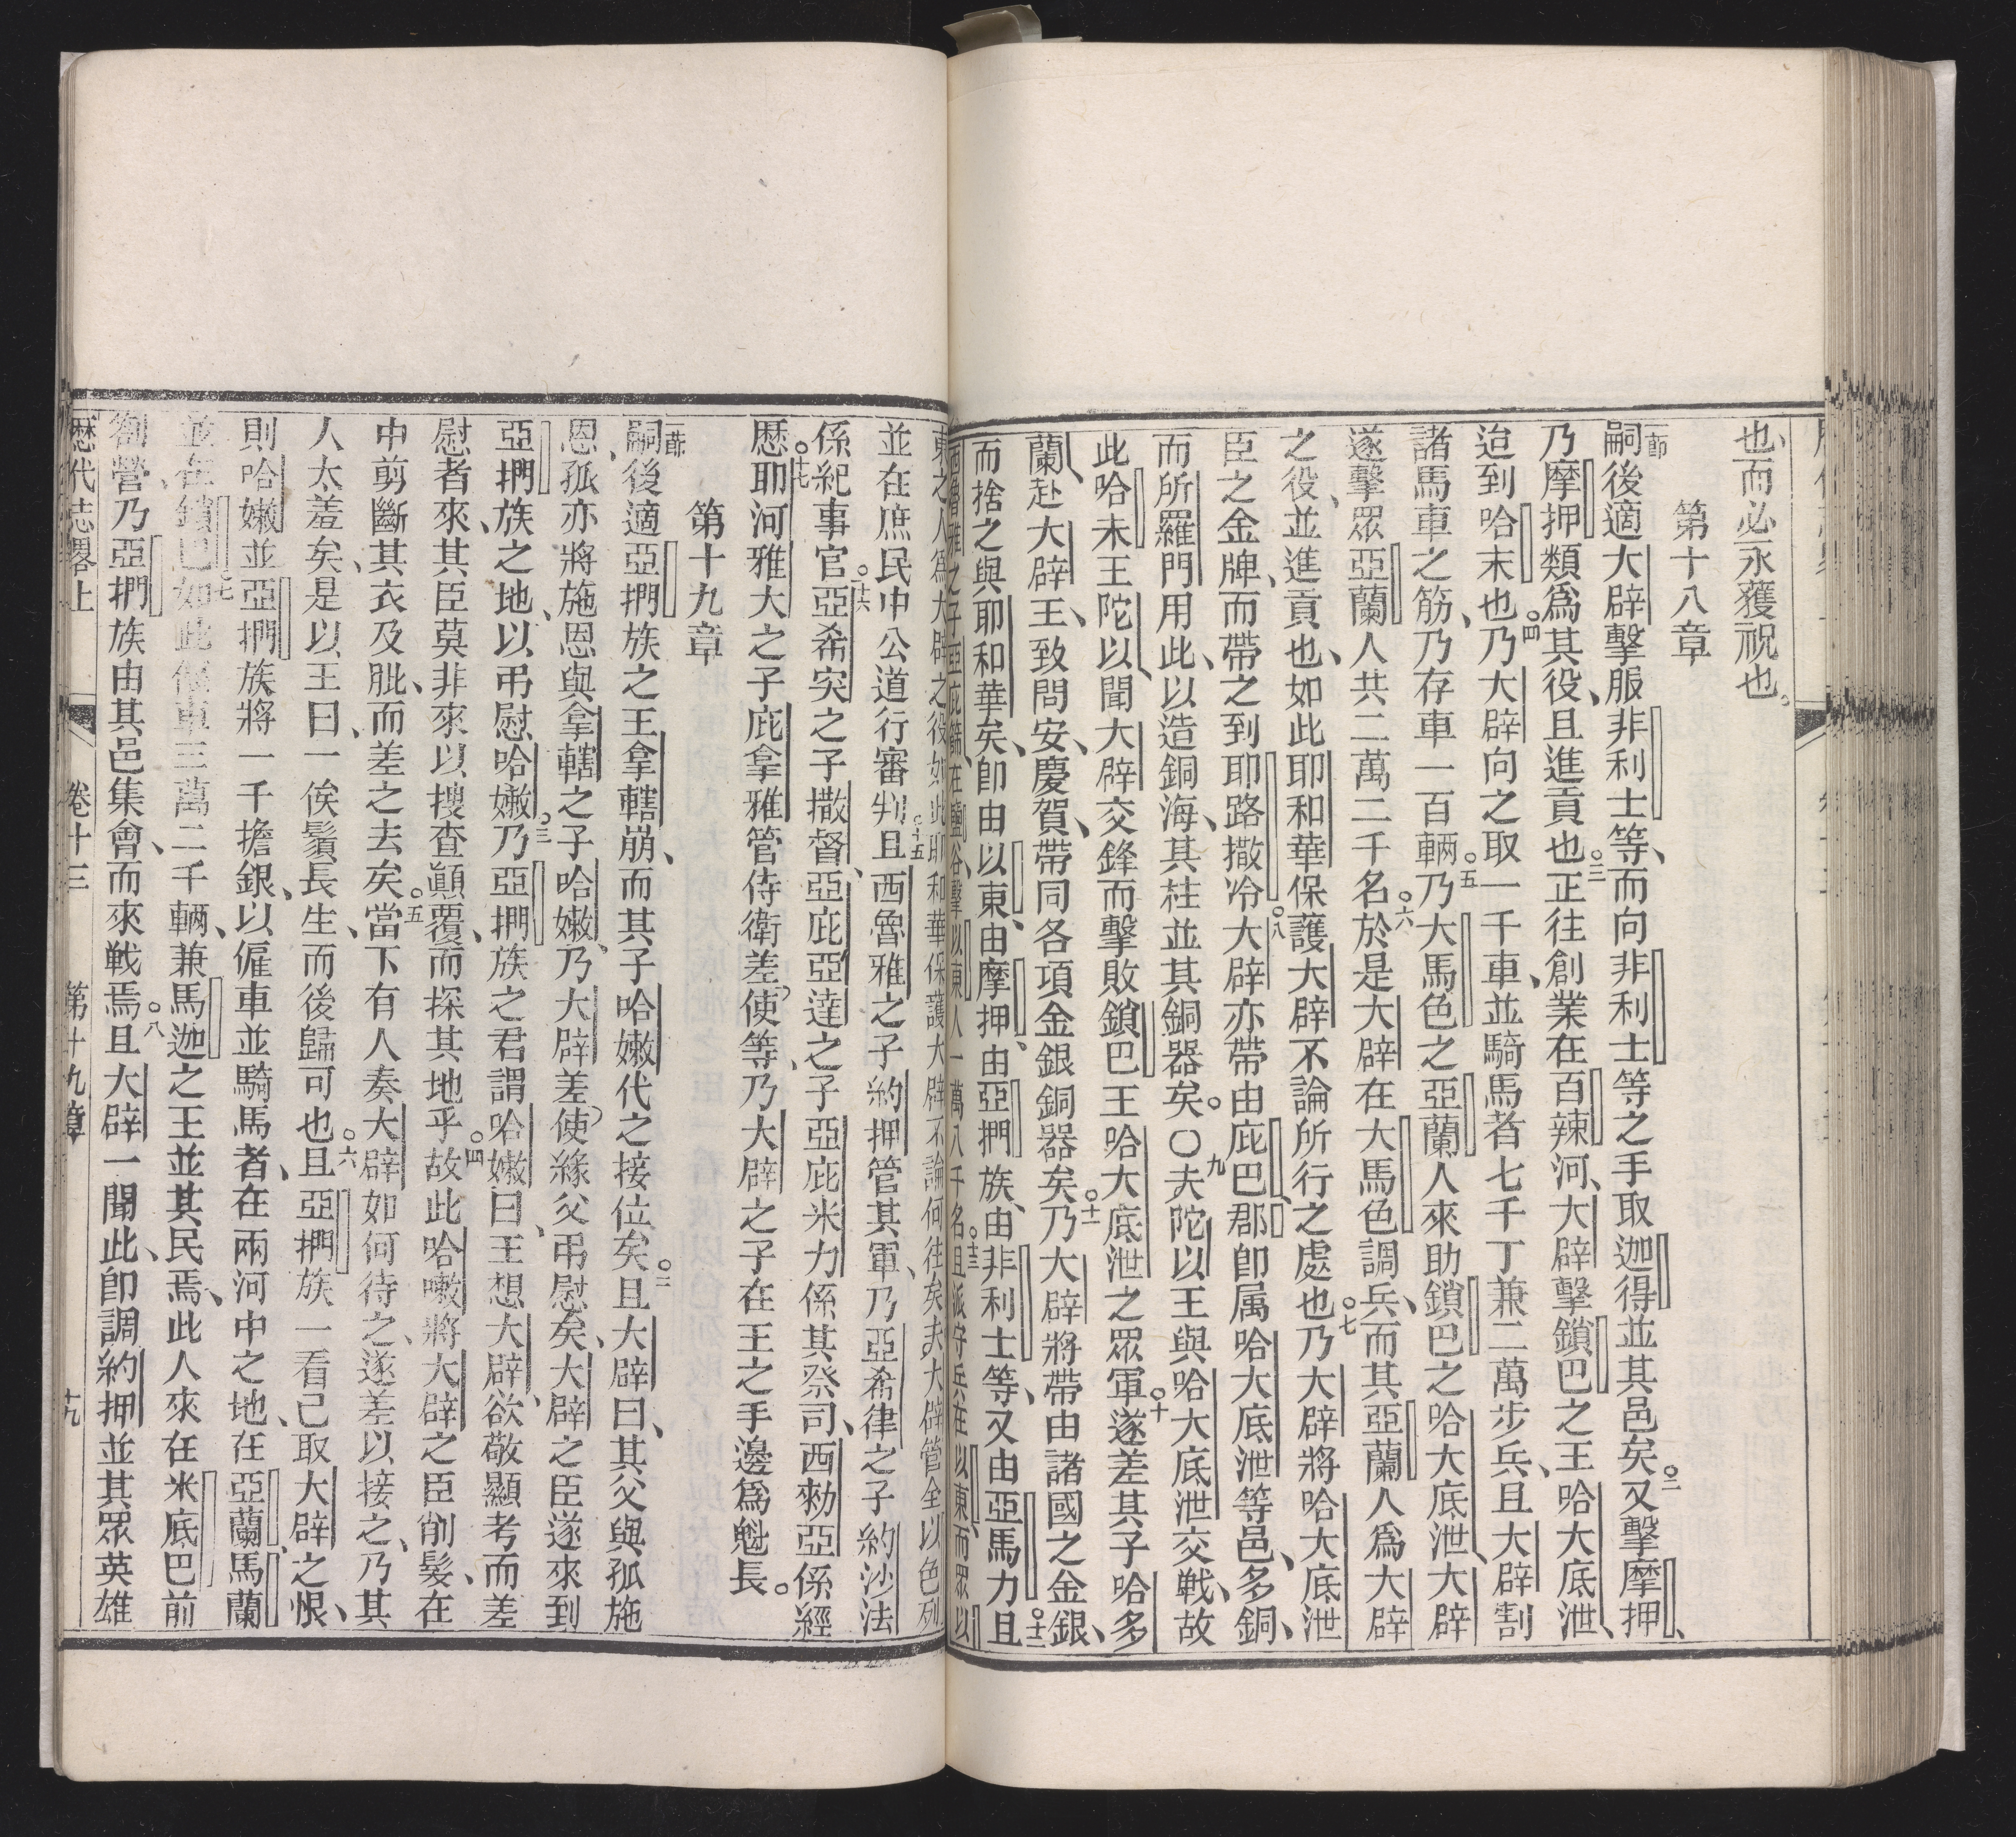 也、而必永獲祝也。
第十八章
節嗣後適大辟擊服非利士等、而向非利士等之手取迦得並其邑矣○二又擊摩押、
乃摩押類爲其役、且進貢也○三正往創業在百辣河、大辟擊鎖巴之王哈大底泄、
迨到哈末也○四乃大辟向之取一千車、並騎馬者七千丁兼二萬步兵、且大辟割
諸馬車之筋、乃存車一百輛○五乃大馬色之亞蘭人來助鎖巴之哈大底泄、大辟
遂擊眾亞蘭人共二萬二千名○六於是大辟在大馬色調兵、而其亞蘭人爲大辟
之役、並進貢也、如此耶和華保護大辟不論所行之處也○七乃大辟將哈大底泄
臣之金牌、而帶之到耶路撒冷○八大辟亦帶由庇巴郡、即属哈大底泄等邑、多銅、
而所羅門用此、以造銅海、其柱並其銅器矣。〇九夫陀以王與哈大底泄交戰、故
此哈末王陀以、聞大辟交鋒而擊敗鎖巴王哈大底泄之眾軍○十遂差其子哈多
蘭、赴大辟王、致問安、慶賀、帶同各項金銀銅器矣○十一乃大辟將帶由諸國之金銀、
而捨之與耶和華矣、即由以東、由摩押、由亞捫族、由非利士等、又由亞馬力○十二且
西魯雅之子亞庇篩、在鹽谷擊以東人一萬八千名○十三且派守兵在以東、而眾以
東之人爲大辟之役、如此耶和華保護大辟不論何往矣夫大辟管全以色列
並在庶民中公道行審判○十五且西魯雅之子約押管其軍、乃亞希律之子約沙法
係紀事官○十六亞希突之子撒督、亞庇亞達之子亞庇米力係其祭司、西勑亞係經
歷○十七耶河雅大之子庇拿雅管侍衛差使等、乃大辟之子在王之手邊爲魁長。
第十九章
節嗣後適亞捫族之王拿轄崩、而其子哈嫩代之接位矣○二且大辟曰、其父與孤施
恩、孤亦將施恩與拿轄之子哈嫩、乃大辟差使緣父弔慰矣、大辟之臣遂來到
亞捫族之地、以弔慰哈嫩○三乃亞捫族之君謂哈嫩曰、王想大辟欲敬顯考而差
慰者來、其臣莫非來以搜查顚覆、而探其地乎○四故此哈嫩將大辟之臣削髮、在
中剪斷其衣及肶、而差之去矣○五當下有人奏大辟如何待之、遂差以接之、乃其
人太羞矣、是以王曰、一俟鬚長生、而後歸可也○六且亞捫族一看己取大辟之恨、
則哈嫩並亞捫族將一千擔銀、以僱車並騎馬者、在兩河中之地、在亞蘭馬蘭
並在鎖巴○七如此僱車三萬二千輛、兼馬迦之王並其民焉、此人來在米底巴前
劄營、乃亞捫族由其邑集會、而來戰焉○八且大辟一聞此、即調約押並其眾英雄
歷代志畧上 卷十三 第十九章 十九